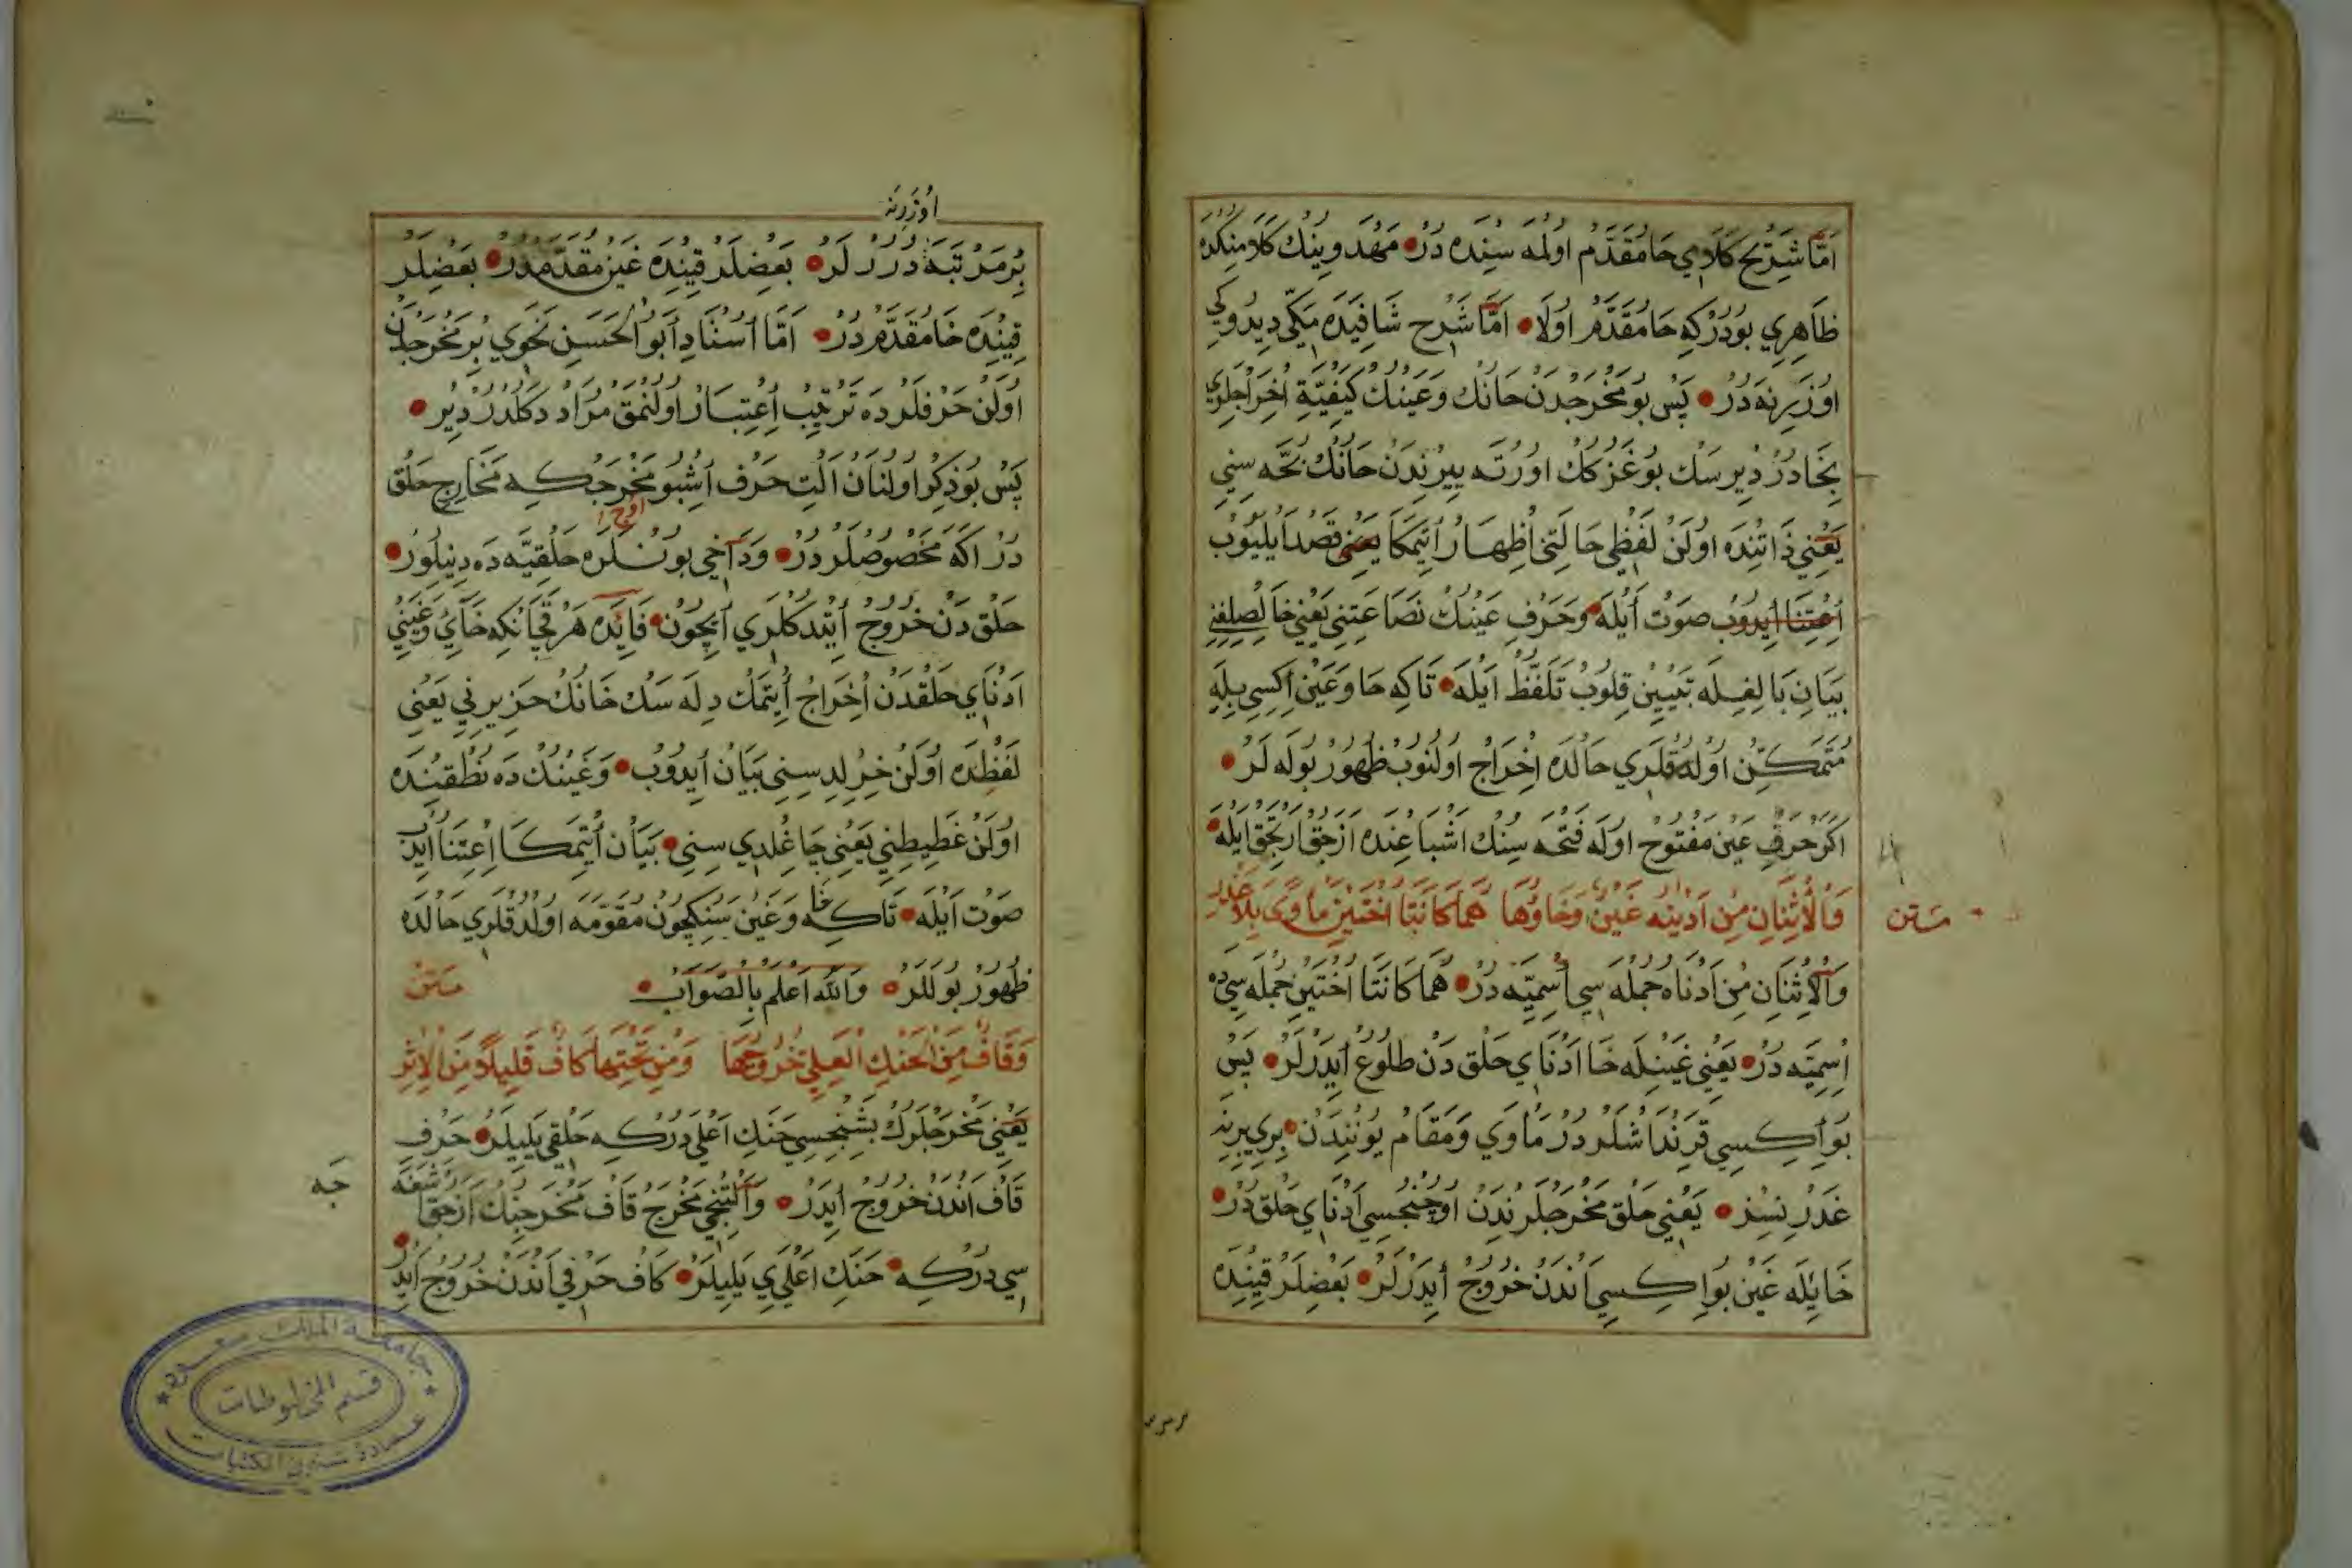 اَمَّا شَرْحِ كَلَامِي حَا مُقَدَّم اولمه سنده دُرْ مَهْدَوِينك كلامنكده
ظَاهِرِي بودركه حَا مُقَدَّم اولا اَمَّا شَرْحِ شَافِيَده مَكّي ديدوكي
اوزرينه دُرْ پَس بو مَخْرَجْدَن حَانك وَعَيْنك كَيْفِيَّةِ اِخْرَاجلري
نجادر ديرسك بوغزك اورته ييرندن حانك بُحَّه سني
يَعْنِي ذَاتِنْدَه اولن لَفْظِي حَالَتِن اِظْهَار اتمكا يَعْنِي قَصْد ايليوب
اِعْتِنَا ايدوب صَوْت ايله وَحَرْفِ عَيْنك نَصَاعَتِنِي يَعْنِي خالصلغن
بَيَانِ بَالِغِله تَبْيِين قلوب تَلَفُّظ ايله تاكه حا وَعَيْن اكسي بله
مُتَمَكِّن اولدقلري حالده اِخْرَاج اولنوب ظُهُور بوله لر
اكر حَرْفِ عَيْن مَفْتُوح اوله فَتْحَه سنك اشباعنده ازجق ارتجق ايله
مَتن
وَالْاِثْنَانِ مِن اَدْنَيْه غَيْن وَخَاؤُهَا هُمَا كَانَتَا اُخْتَيْنِ مَأْوًى بِلَا غَدْر
وَالْاِثْنَانِ مِن اَدْنَاه جمله سي اسميّه در هُمَا كَانَتَا اُخْتَيْنِ جمله سي ده
اسميّه در يَعْنِي غينله خا اَدْنَاي حَلْق دَن طُلُوع ايدرلر پس
بو اكسي قرنداشلردر مَأْوَي وَمَقَام يونندن بري برينه
غدرسز يَعْنِي حَلْق مَخْرَجلرندن اوچنجسي اَدْنَاي حَلْق در
خَايله غَيْن بو اكسي اندن خُرُوج ايدرلر بَعْضلر قيننده
اوزرينه
بر مَرْتَبَه دررلر بَعْضلر قيننده غَيْن مُقَدَّمدر بَعْضلر
قيننده خَا مُقَدَّم در اَمَّا اُسْتَاد اَبُو الْحَسَن نَحْوِي بر مَخْرَجدن
اولن حَرْفلرده تَرْتِيب اِعْتِبَار اولنمق مُرَاد دكلدر دير
پس بو ذِكْر اولنان التي حَرْف اشبو اوچ مَخْرَجكه مَخَارِج حَلْق
در اكه مَخْصُوصلردر ودَاخي بونلره حَلْقِيَّه ده دينلور
حَلْق دن خُرُوج ايتدكلري ايچون فَائِده هر قچانكه خائي وَغَيْنِي
اَدْنَاي حَلْقدن اِخْرَاج ايتمك دله سك خَانك خريرني يَعْنِي
لَفْظنده اولن خرلدسني بَيَان ايدوب وَغَيْنك ده نُطْقِنده
اولن غَطِيطني يَعْنِي چاغلدي سني بَيَان اتمكا اِعْتِنَا ايدب
صَوْت ايله تاكه خا وَغَيْن سنكچون مُقَوَّمه اولدقلري حالده
ظُهُور بوللر وَاللّٰه اَعْلَم بِالصَّوَاب مَتن
وَقَافٌ مِنَ الْحَنَكِ الْعَلِي خُرُوجُهَا وَمِنْ تَحْتِهَا كَافٌ قَلِيلًا مِنَ الْاِثْر
يَعْنِي مَخْرَجلرك بشنجسي حَنَكِ اَعْلَي دركه حَلْقي يليلر حَرْف
قَاف اندن خُرُوج ايدر وَالتنجي مَخْرَج قَاف مَخْرَجنك ازجق اشغه
جه
سي دركه حَنَكِ اَعْلَي يليلر كَاف حَرْفي اندن خُرُوج ايدر
جامعة الملك سعود
قسم المخطوطات
عمادة شئون المكتبات